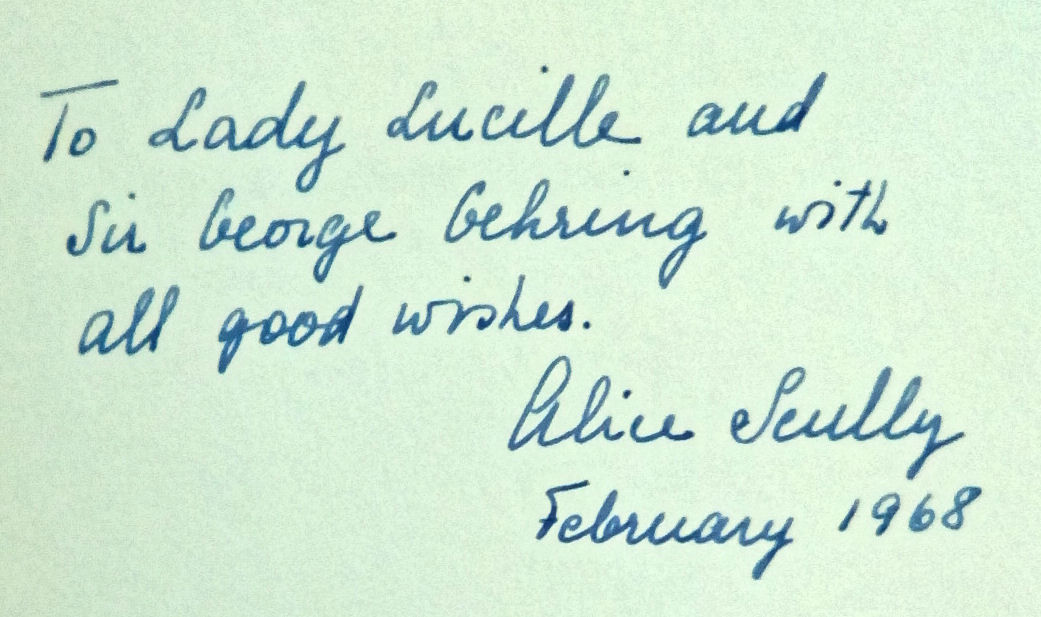 To Lady Lucille and
Sir George Gehring with
all good wishes.
Alice Scully
February 1968